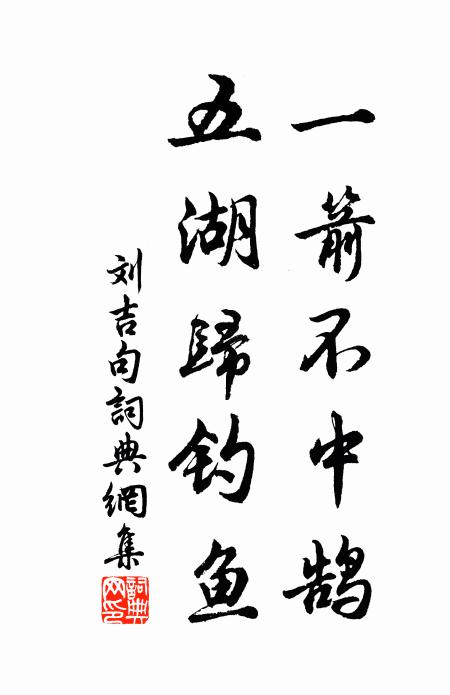 一箭不中鹄
五湖歸钓鱼
刘吉句詞典網集
詞典网印